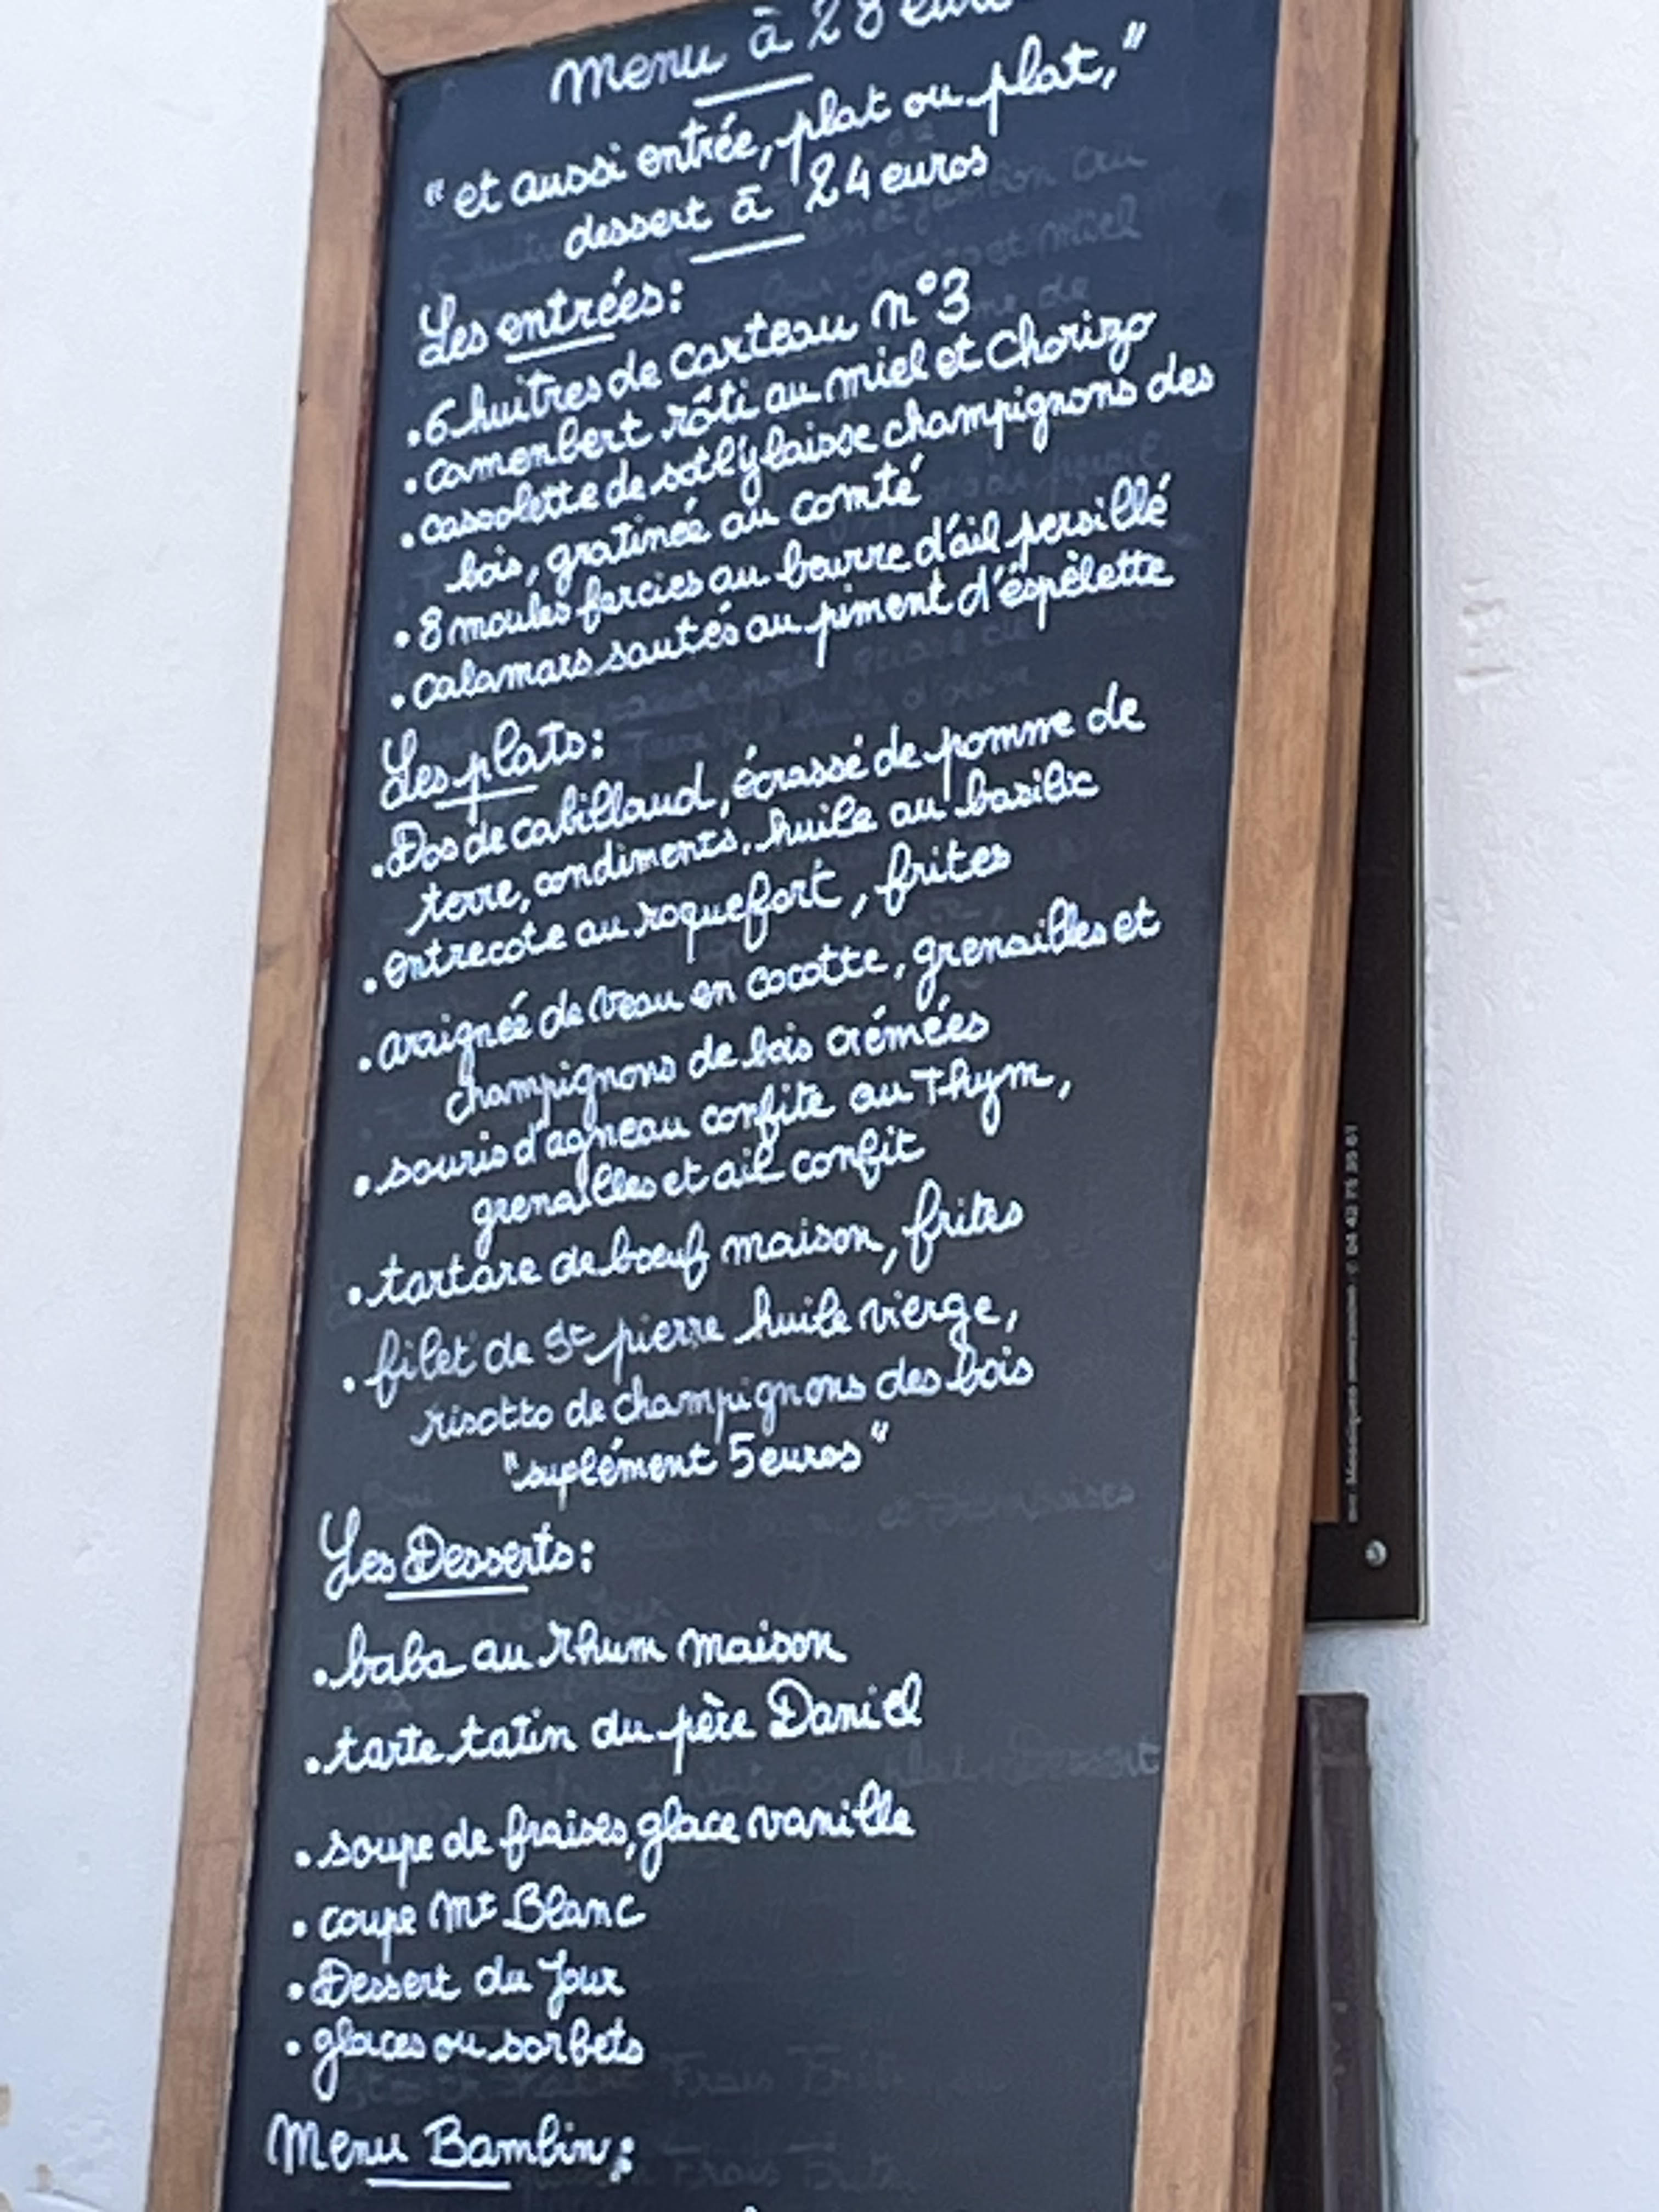 Menu à 28 euro
"et aussi entrée, plat ou plat,"
dessert à 24 euros
Les entrées:
. 6 huitres de carteau n°3
. camenbert rôti au miel et chorizo
. cassolette de sot l'y laisse champignons des
bois, gratinée au comté
. 8 moules farcies au beurre d'ail persillé
. calamars sautés au piment d'éspèlette
Les plats:
. Dos de cabillaud, écrassé de pomme de
terre, condiments, huile au basilic
. entrecote au roquefort, frites
. araignée de veau en cocotte, grenailles et
champignons de bois crémées
. souris d'agneau confite au Thym,
grenailles et ail confit
. tartare de boeuf maison, frites
. filet de St pierre huile vierge,
risotto de champignons des bois
"suplément 5 euros"
Les Desserts:
. baba au rhum maison
. tarte tatin du père Daniel
. soupe de fraises, glace vanille
. coupe Mt Blanc
. Dessert du Jour
. glaces ou sorbets
Menu Bambin: